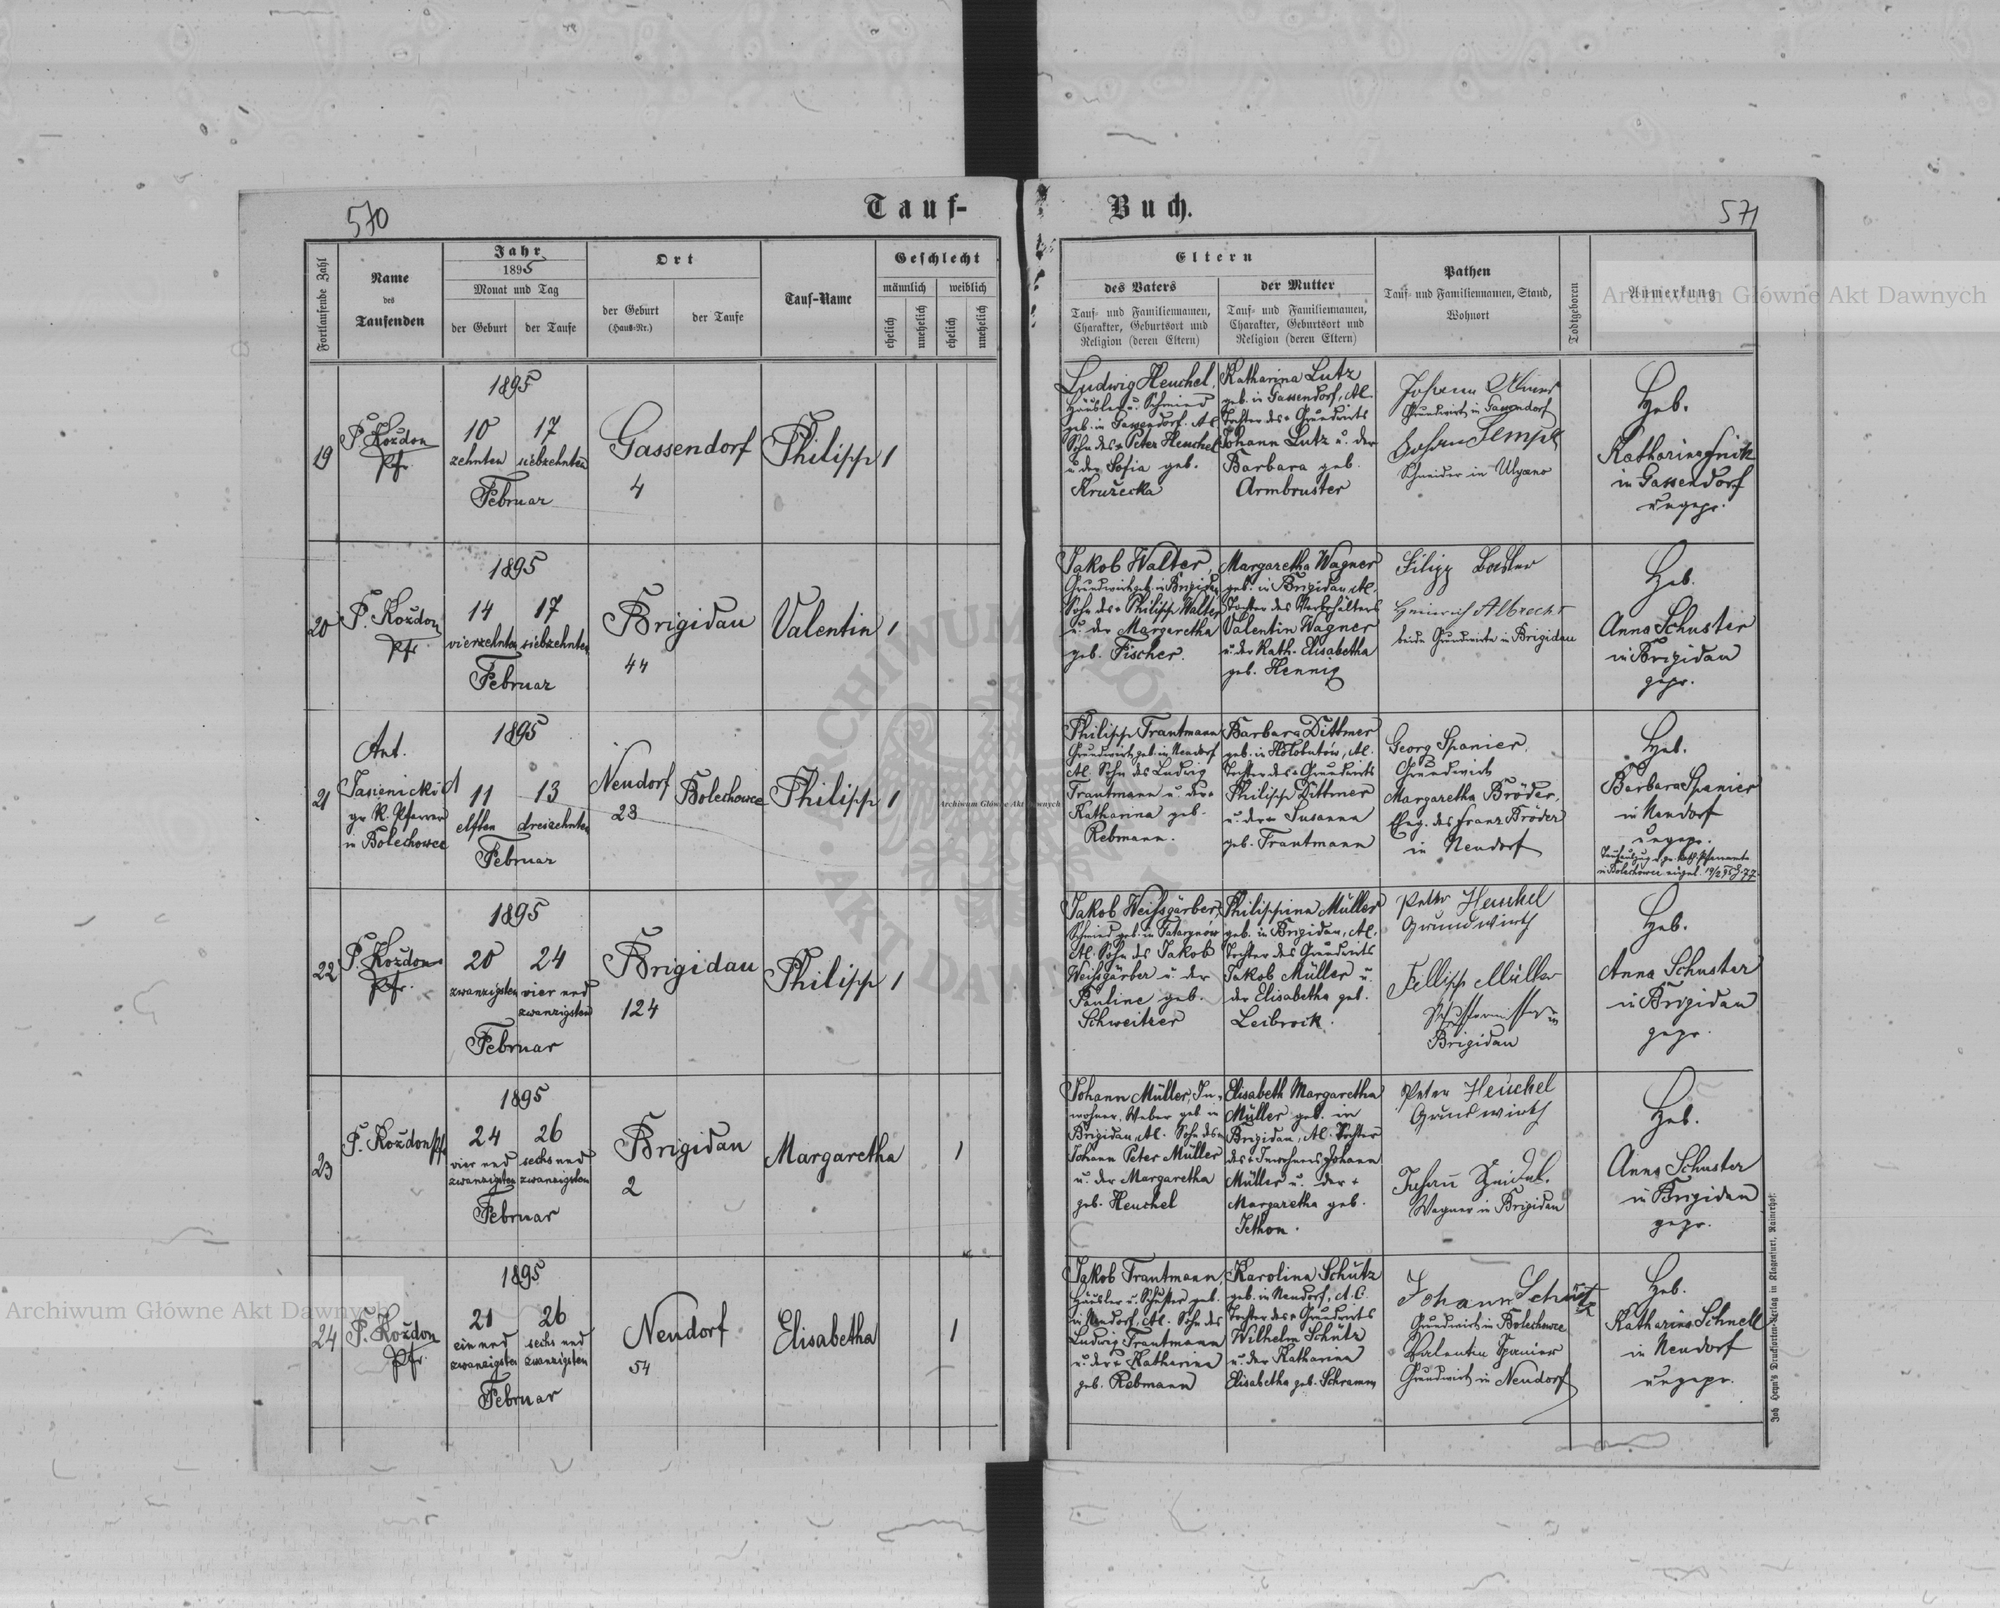 570
Tauf-
Buch.
571
Fortlaufende Zahl
Name
des
Taufenden
Jahr
1895
Monat und Tag
der Geburt
der Taufe
Ort
der Geburt
(Haus-Nr.)
der Taufe
Tauf-Name
Geschlecht
männlich
weiblich
ehelich
unehelich
ehelich
unehelich
Eltern
des Vaters
Tauf- und Familiennamen,
Charakter, Geburtsort und
Religion (deren Eltern)
der Mutter
Tauf- und Familiennamen,
Charakter, Geburtsort und
Religion (deren Eltern)
Pathen
Tauf- und Familiennamen, Stand,
Wohnort
Todtgeboren
Anmerkung
Archiwum Główne Akt Dawnych
19
P. Koždon
Pfr.
1895
10
17
zehnten
siebzehnten
Februar
Gassendorf
4
Philipp
1
Ludwig Heuchel,
Häusler u. Schmied
geb. in Gassendorf. A.C.
Sohn des + Peter Heuchel
u. der Sofia geb.
Kružecka
Katharina Lutz
geb. in Gassendorf, A.C.
Tochter des + Grundwirts
Johann Lutz u. der
Barbara geb.
Armbruster
Johann
Grundwirt in Gassendorf
Schneider in Ulyczno
Heb.
Katharina
in Gassendorf
ungepr.
20
P. Koždon
Pfr.
1895
14
17
vierzehnten
siebzehnten
Februar
Brigidau
44
Valentin
1
Jakob Walter,
Grundwirt geb. in Brigidau
Sohn des + Philipp Walter
u. der Margaretha
geb. Fischer.
Margaretha Wagner
geb. in Brigidau, A.C.
Tochter des
Valentin Wagner
u. der Kath. Elisabetha
geb. Hennig
Filipp
Heinrich Albrecht
beide Grundwirte in Brigidau
Heb.
Anna Schuster
in Brigidau
gepr.
21
Ant.
Jasienicki
gr. k. Pfarrer
in Bolechowce
1895
11
13
elften
dreizehnten
Februar
Neudorf
23
Bolechowce
Philipp
1
Philipp Trautmann
Grundwirt geb. in Neudorf
A.C. Sohn des Ludwig
Trautmann u. der +
Katharina geb.
Rebmann.
Barbara Dittmer
geb. in Hołobutów, A.C.
Tochter des + Grundwirts
Philipp Dittmer
u. der + Susanna
geb. Trautmann
Georg Spanier,
Grundwirt
Margaretha Bröder,
Eheg. des Franz Bröder
in Neudorf
Heb.
Barbara Spanier
in Neudorf
ungepr.
22
P. Koždon
Pfr.
1895
20
24
zwanzigsten
vier und
zwanzigsten
Februar
Brigidau
124
Philipp
1
Jakob Weißgärber,
Schmied geb. in
A.C. Sohn des Jakob
Weißgärber u. der
Pauline geb.
Schweitzer
Philippina Müller
geb. in Brigidau, A.C.
Tochter des Grundwirts
Jakob Müller u.
der Elisabetha geb.
Leibrock.
Peter Heuchel
Grundwirth
Fillipp Müller
Schustermeister in
Brigidau
Heb.
Anna Schuster
in Brigidau
gepr.
23
P. Koždon Pfr.
1895
24
26
vier und
zwanzigsten
sechs und
zwanzigsten
Februar
Brigidau
2
Margaretha
1
Johann Müller, In-
wohner, Weber geb. in
Brigidau, A.C. Sohn des +
Johann Peter Müller
u. der Margaretha
geb. Heuchel
Elisabeth Margaretha
Müller geb. in
Brigidau, A.C. Tochter
des + Inwohners Johann
Müller u. der +
Margaretha geb.
Jethon.
Peter Heuchel
Grundwirth
Johann Zeidel.
Wagner in Brigidau
Heb.
Anna Schuster
in Brigidau
gepr.
24
P. Koždon
Pfr.
1895
21
26
ein und
zwanzigsten
sechs und
zwanzigsten
Februar
Neudorf
54
Elisabetha
1
Jakob Trautmann,
Häusler u. Schuster geb.
in Neudorf, A.C. Sohn des
Ludwig Trautmann
u. der + Katharina
geb. Rebmann
Karolina Schütz
geb. in Neudorf, A.C.
Tochter des + Grundwirts
Wilhelm Schütz
u. der Katharina
Elisabetha geb. Schramm
Johann Schütz
Grundwirt in Bolechowce
Valentin Spanier
Grundwirt in Neudorf
Heb.
Katharina Schnell
in Neudorf
ungepr.
Joh. Heyn's Drucksorten-Verlag in Klagenfurt, Rainerhof.
Archiwum Główne Akt Dawnych
Archiwum Główne Akt Dawnych
ARCHIWUM GŁÓWNE AKT DAWNYCH